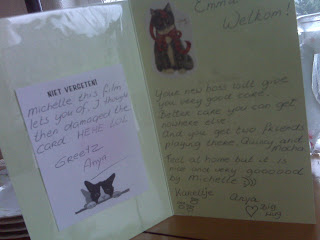 NIET VERGETEN!
michelle this film
lets you of, I though
then damaged the
card HEHE LOL
Greetz
Anya
Emma
Welkom!
Your new boss will give
you very good care.
Better care you can get
nowhere else
And you get two friends
playing there, Quincy and
Mocha
Feel at home but it is
nice and very goooood
by Michelle
Kareltje
Anya